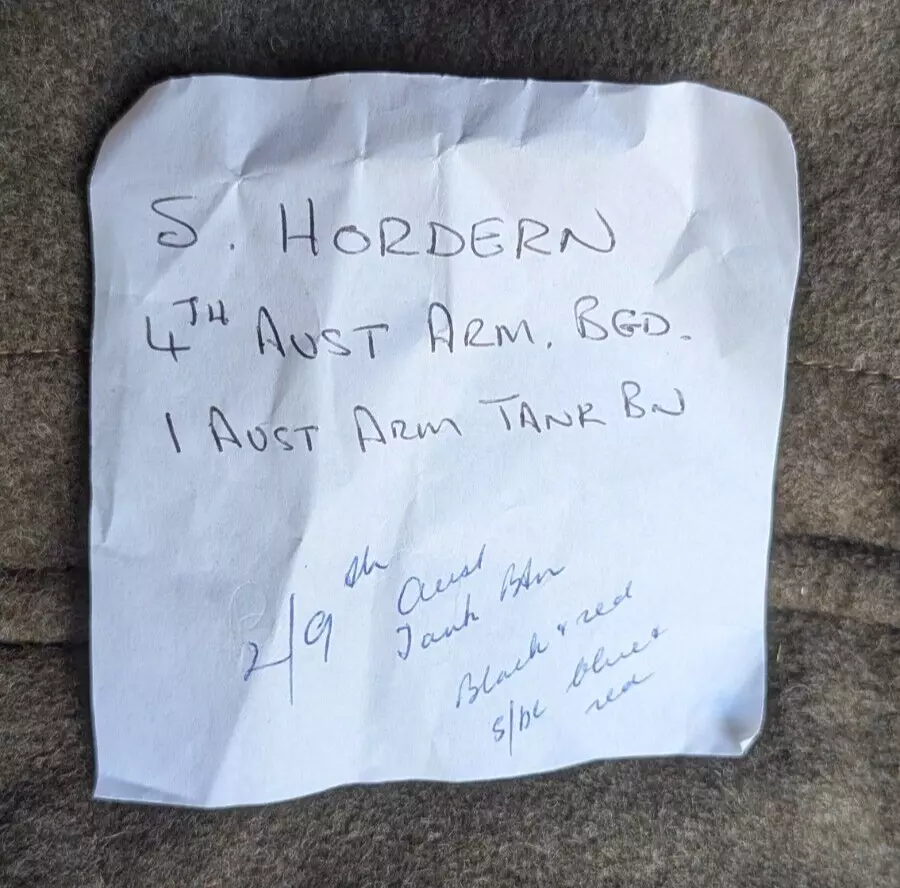 S. HORDERN
4TH AUST ARM. BGD.
1 AUST ARM TANK BN
2/9th Aust
Tank Btn
Black & red
s/be blue &
red